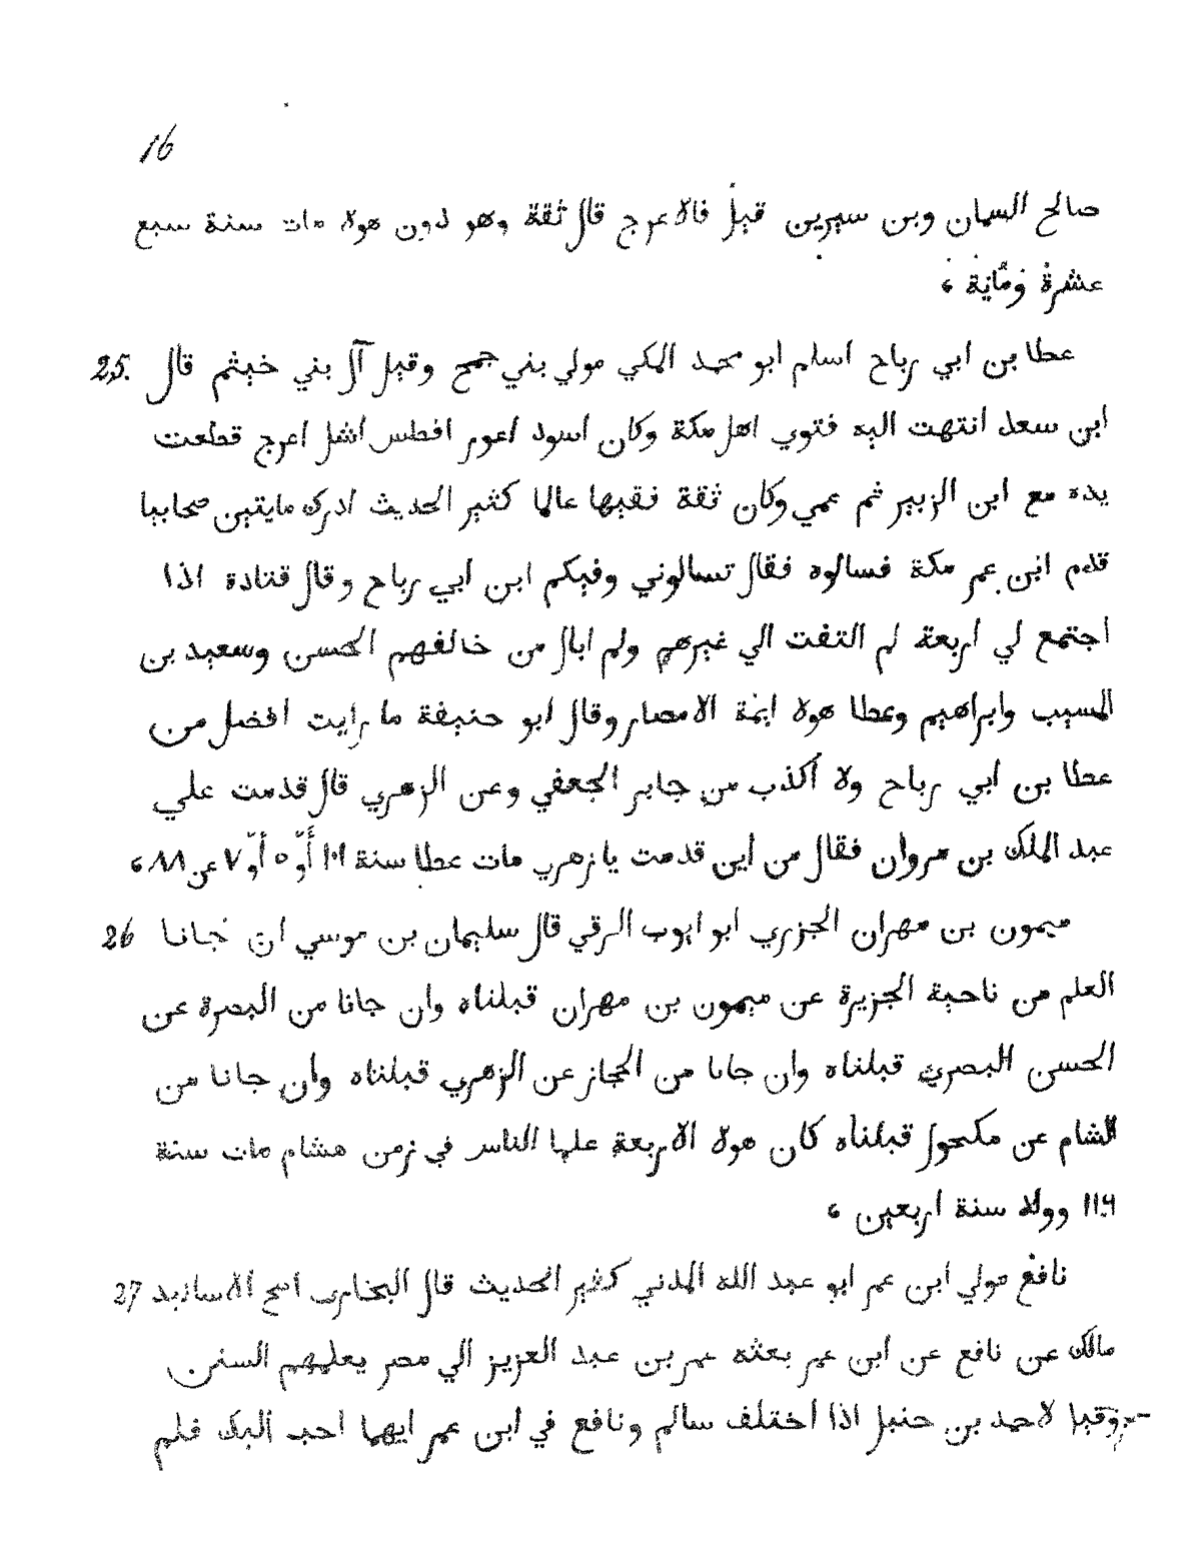 16
صالح السمان وبن سيرين قيل فالاعرج قال ثقة وهو دون هولا مات سنة سبع
عشرة ومّاية ،
25. عطا بن ابي رباح اسلم ابو محمد المكي مولي بني جمح وقيل آل بني خيثم قال
ابن سعد انتهت اليه فتوي اهل مكة وكان اسود اعور افطس اشل اعرج قطعت
يده مع ابن الزبير ثم عمي وكان ثقة فقيها عالما كثير الحديث ادرك مايقين صحابيا
قدم ابن عمر مكة فسالوه فقال تسالوني وفيكم ابن ابي رباح وقال قتادة اذا
اجتمع لي اربعة لم التفت الي غيرهم ولم ابال من خالفهم الحسن وسعيد بن
المسيب وابراهيم وعطا هولا ايمة الامصار وقال ابو حنيفة ما رايت افضل من
عطا بن ابي رباح ولا أكذب من جابر الجعفي وعن الزهري قال قدمت علي
عبد الملك بن مروان فقال من أين قدمت يا زهري مات عطا سنة أو ٥ أو ٧ عن ٨٨ ،
26 ميمون بن مهران الجزري ابو ايوب الرقي قال سليمان بن موسي ان جانا
العلم من ناحية الجزيرة عن ميمون بن مهران قبلناه وان جانا من البصرة عن
الحسن البصري قبلناه وان جانا من الحجاز عن الزهري قبلناه وان جانا من
الشام عن مكحول قبلناه كان هولا الاربعة علما الناس في زمن هشام مات سنة
وولد سنة اربعين ،
27 نافع مولي ابن عمر ابو عبد الله المدني كثير الحديث قال البخاري اصح الاسانيد
مالك عن نافع عن ابن عمر بعثه عمر بن عبد العزيز الي مصر يعليهم السنن
وقيل لاحمد بن حنبل اذا أختلف سالم ونافع في ابن عمر ايهما احب اليك فلم